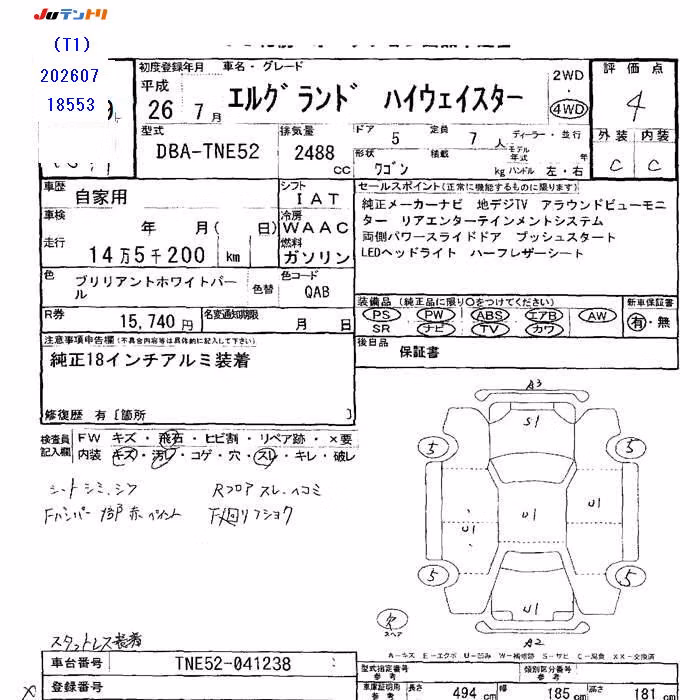 JUテントリ
(T1)
202607
18553
初度登録年月 車名・グレード
平成 26年 7月
エルグランド ハイウェイスター
2WD
・
4WD
評価点
4
外装 内装
C C
型式
DBA-TNE52
排気量
2488 CC
ドア 5 定員 7人 ディーラー・並行
モデル年式 年
形状 ワゴン 積載 kg ハンドル 左・右
車歴 自家用
シフト IAT
車検 年 月( 日)
冷房 WAAC
走行 14万5千200 km
燃料 ガソリン
セールスポイント(正常に機能するものに限ります)
純正メーカーナビ 地デジTV アラウンドビューモニ
ター リアエンターテインメントシステム
両側パワースライドドア プッシュスタート
LEDヘッドライト ハーフレザーシート
色 ブリリアントホワイトパール
色替
色コード QAB
R券 15,740円
名変通知期限 月 日
装備品(純正品に限り○をつけてください)
PS・PW・ABS・エアB・AW
SR ナビ・TV・カワ
新車保証書
有・無
後日品 保証書
注意事項申告欄(不具合内容等は具体的に記入して下さい)
純正18インチアルミ装着
修復歴 有[箇所 ]
検査員記入欄
FW キズ・飛石・ヒビ割・リペア跡・×要
内装 キズ・汚レ・コゲ・穴・スレ・キレ・破レ
シートシミ、シワ Rフロアスレ、ヘコミ
Fバンパー 1部赤ペイント F下回リフショク
A3
S1
5 5
U1 U1 U1
5 5
U1
A2
欠
スペア
A-キズ E-エクボ U-凹み W-補修跡 S-サビ C-腐食 XX-交換済
スタットレス装着
車台番号 TNE52-041238
登録番号
型式指定番号 参考
類別区分番号 参考
車庫証明用 参考
長さ 494 cm 幅 185 cm 高さ 181 cm